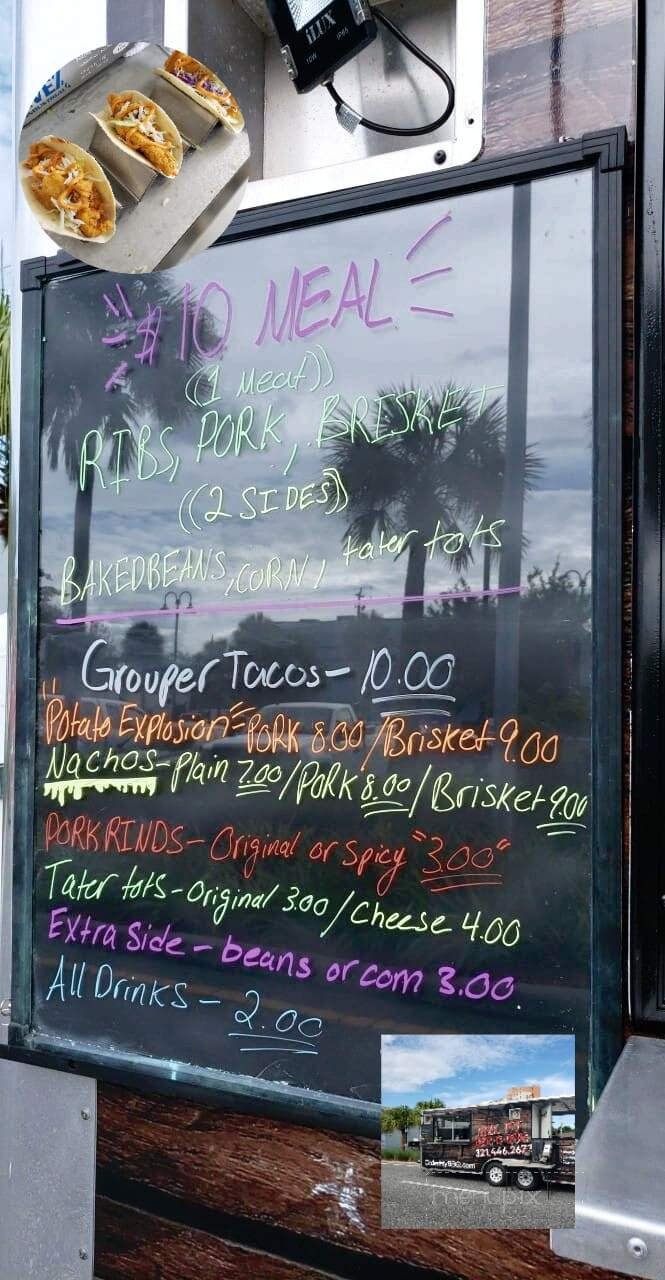 iLUX
10W IP65
$10 MEAL
((1 Meat))
RIBS, PORK, BRISKET
((2 SIDES))
BAKEDBEANS, CORN, tater tots
Grouper Tacos - 10.00
"Potato Explosion" PORK 8.00 / Brisket 9.00
Nachos - Plain 7.00 / PORK 8.00 / Brisket 9.00
PORK RINDS - Original or Spicy "3.00"
Tater tots - Original 3.00 / Cheese 4.00
Extra Side - beans or corn 3.00
All Drinks - 2.00
321.446.2673
OrderMyBBQ.com
menupix